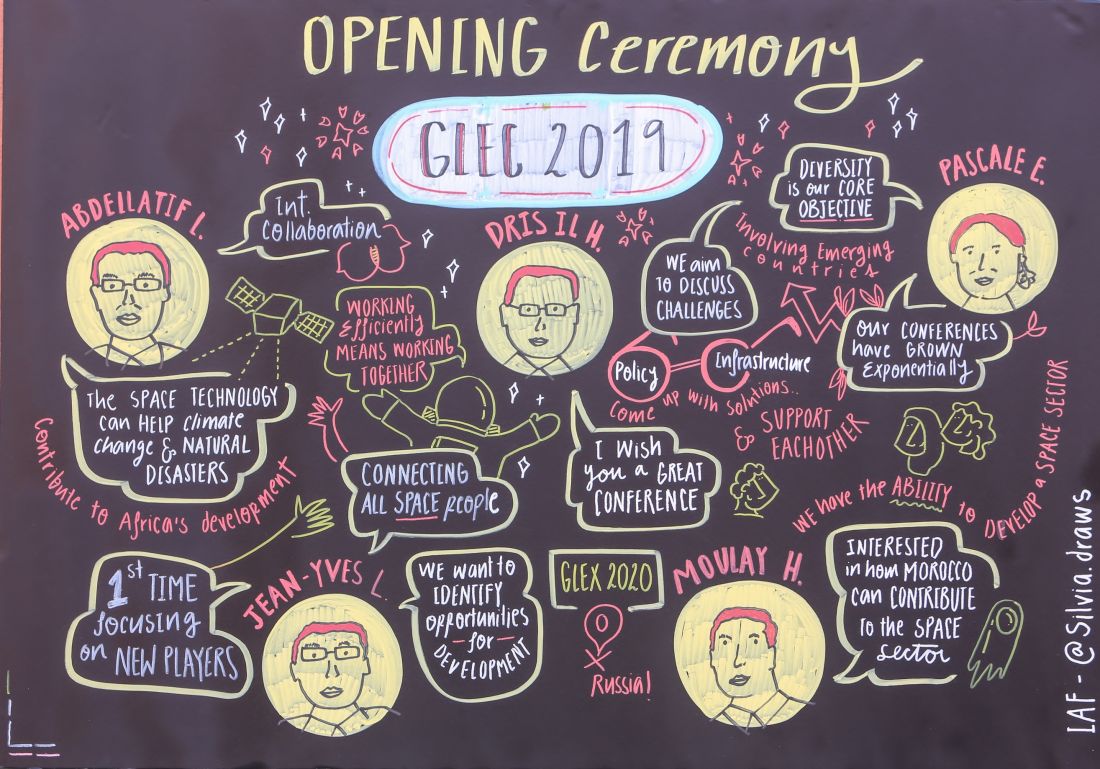 OPENING Ceremony
GLEC 2019
ABDELLATIF L.
Int.
Collaboration
THE SPACE TECHNOLOGY
can HELP climate
change & NATURAL
DISASTERS
Contribute to Africa's development
WORKING
Efficiently
MEANS WORKING
TOGETHER
CONNECTING
ALL SPACE people
DRIS IL H.
WE aim
TO DISCUSS
CHALLENGES
Policy
Infrastructure
come up with solutions..
& SUPPORT
EACHOTHER
I WISH
you a GREAT
CONFERENCE
DIVERSITY
is our CORE
OBJECTIVE
Involving Emerging
countries
PASCALE E.
OUR CONFERENCES
have GROWN
Exponentially
WE have the ABILITY to DEVELOP a SPACE SECTOR
1st TIME
focusing
on NEW PLAYERS
JEAN-YVES L.
WE want to
IDENTIFY
opportunities
- for -
DEVELOPMENT
GLEX 2020
Russia!
MOULAY H.
INTERESTED
in how MOROCCO
can CONTRIBUTE
to the SPACE
sector
LAF - @Silvia.draws